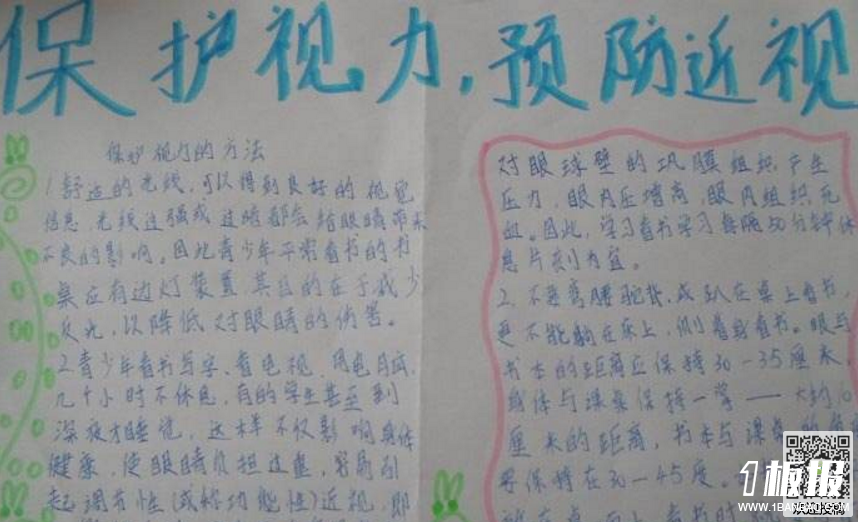 保护视力,预防近视
保护视力的方法
1.舒适的光线,可以得到良好的视觉
信息,光线过强或过暗都会给眼睛带来
不良的影响。因此青少年平常看书的书
桌应有边灯装置其目的在于减少
反光,以降低对眼睛的伤害。
2.青少年看书写字、看电视、用电脑,
几个小时不休息,有的学生甚至到
深夜才睡觉,这样不仅影响身体
健康,使眼睛负担过重,容易引
起调节性(或称功能性)近视,即
对眼球壁的巩膜组织产生
压力,眼内压增高,眼内组织充
血。因此,学习看书学习每隔30分钟休
息片刻为宜。
2.不要弯腰驼背,或趴在桌上看书,
更不能躺在床上,侧着身看书。眼与
书本的距离应保持30-35厘米,
身体与课桌保持一拳——大约10
厘米的距离,书本与课桌的
保持在30-45度。
1板报
WWW.1BANBAO.COM